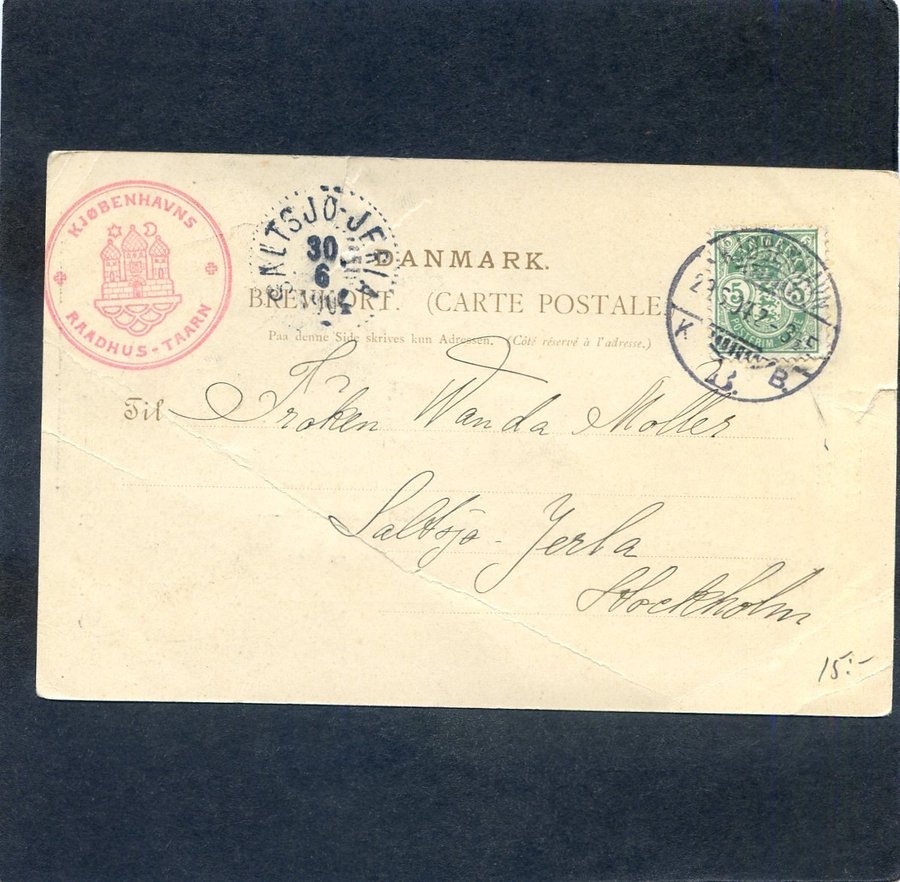 KJØBENHAVNS
RAADHUS-TAARN
SALTSJÖ-JERLA
30
6
DANMARK.
BREVKORT. (CARTE POSTALE
Paa denne Side skrives kun Adressen. (Côté réservé à l'adresse.)
5 5
K B.
Til Fröken Wanda Moller
Saltsjo-Jerla
Stockholm
15:-